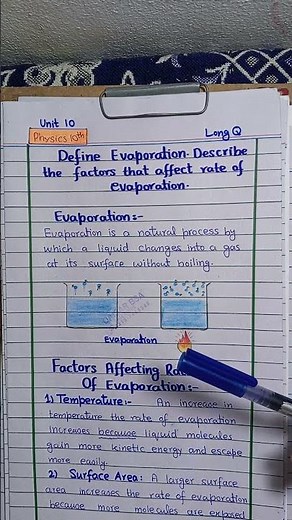 Unit 10
Physics 10th
Long Q
Define Evaporation. Describe
the factors that affect rate of
evaporation.
Evaporation:-
Evaporation is a natural process by
which a liquid changes into a gas
at its surface without boiling.
evaporation
Factors Affecting Ra
Of Evaporation:-
1) Temperature:- An increase in
temperature the rate of evaporation
increases because liquid molecules
gain more kinetic energy and escape
more easily.
2) Surface Area: A larger surface
area increases the rate of evaporation
because more molecules are exposed